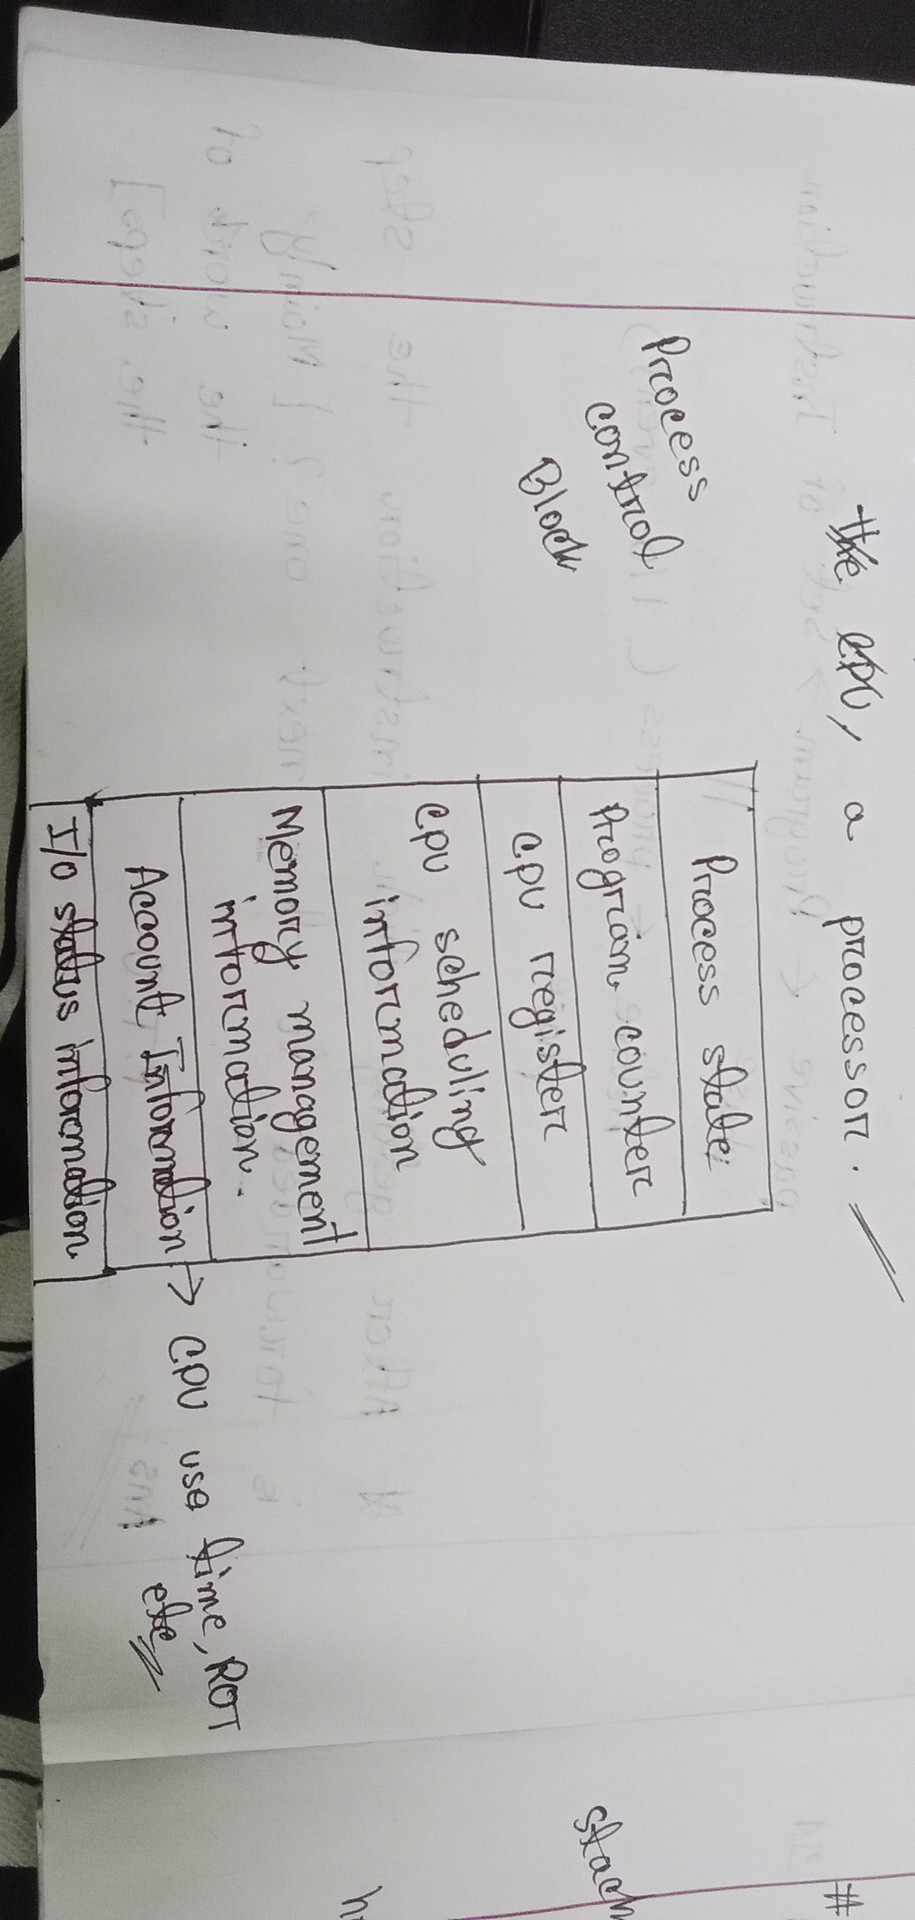 the CPU, a processor.
Process
control
Block
Process state
Program counter
CPU register
CPU scheduling
information
Memory management
information.
Account Information → CPU use time, ROT
etc
I/O status information
#
stack